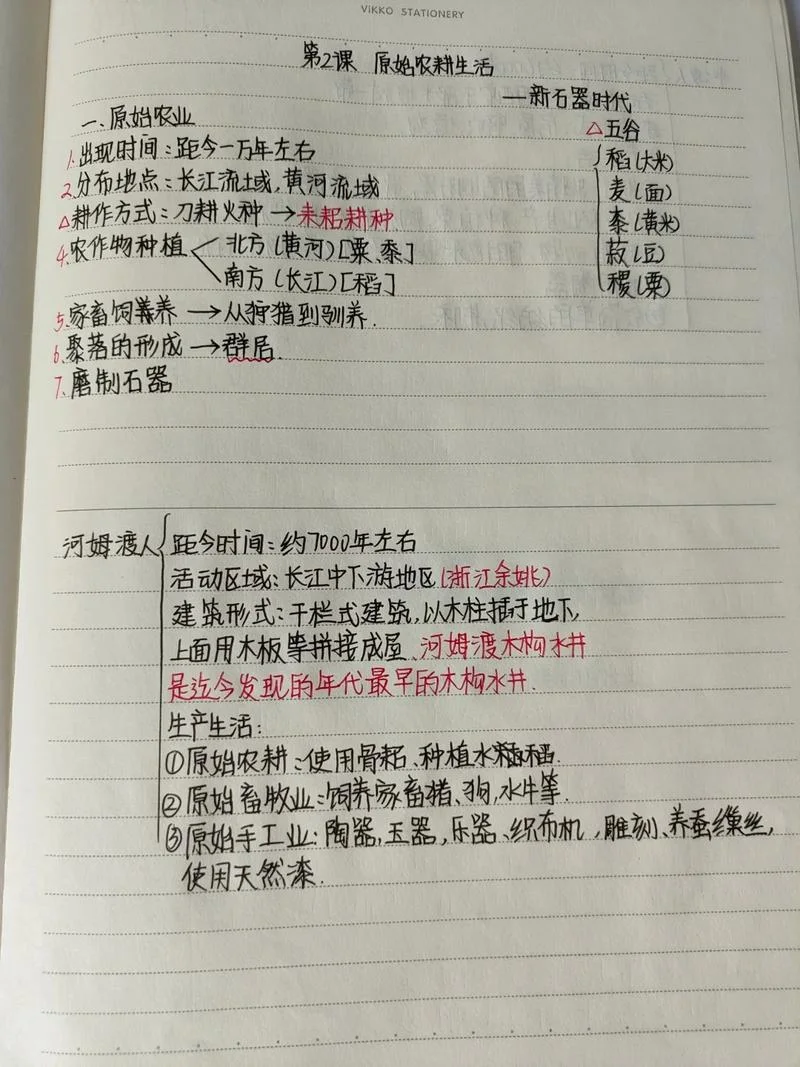 ViKKO STATIONERY
第2课 原始农耕生活
—新石器时代
一、原始农业
1.出现时间:距今一万年左右
2.分布地点:长江流域,黄河流域
△耕作方式:刀耕火种→耒耜耕种
4.农作物种植 北方(黄河)[粟、黍]
南方(长江)[稻]
5.家畜饲养→从狩猎到驯养.
6.聚落的形成→群居.
7.磨制石器
△五谷
稻(大米)
麦(面)
黍(黄米)
菽(豆)
稷(粟)
河姆渡人 距今时间:约7000年左右
活动区域:长江中下游地区(浙江余姚)
建筑形式:干栏式建筑,以木柱插于地下,
上面用木板等拼接成屋、河姆渡木构水井
是迄今发现的年代最早的木构水井.
生产生活:
①原始农耕:使用骨耜、种植水稻.
②原始畜牧业:饲养家畜猪、狗,水牛等.
③原始手工业:陶器,玉器,乐器、织布机,雕刻、养蚕缫丝,
使用天然漆.